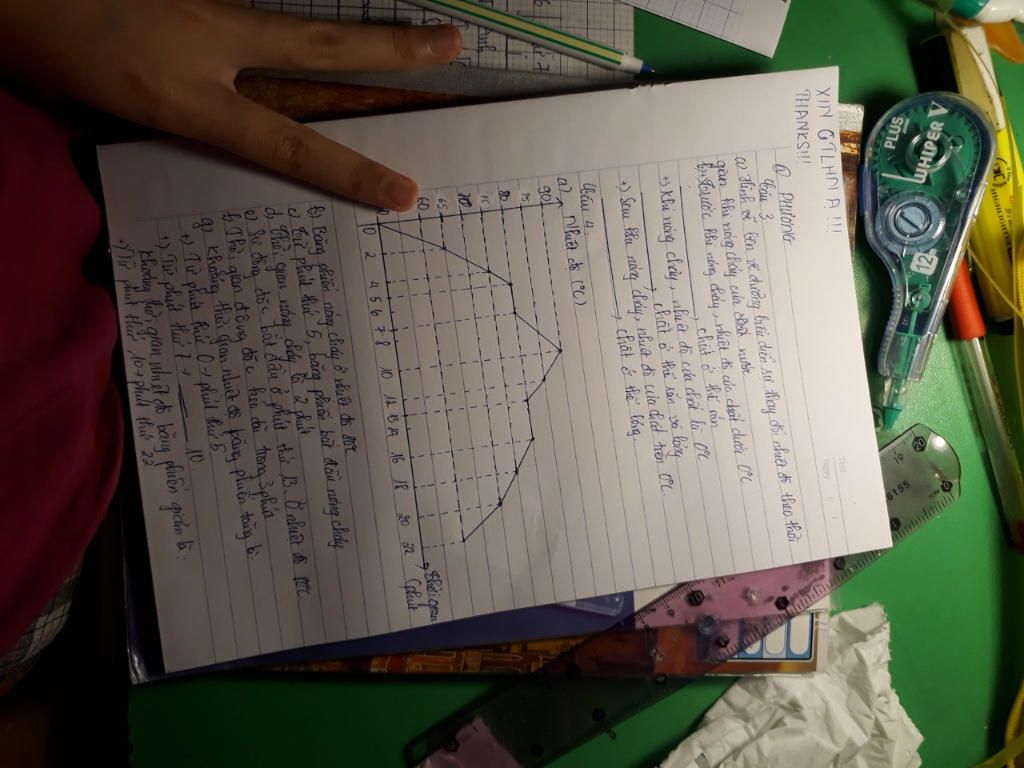 XIN GTLHN A !!!
THANKS!!!
Thứ
Ngày / /
@ PHƯƠNG
Câu 3
a) Hình vẽ bên vẽ đường biểu diễn sự thay đổi nhiệt độ theo thời
gian khi nóng chảy của chất nước
b) +) Trước khi nóng chảy, nhiệt độ của chất dưới 0°C
→ chất ở thể rắn
+) Khi nóng chảy, nhiệt độ của chất là 0°C
→ chất ở thể rắn và lỏng
+) Sau khi nóng chảy, nhiệt độ của chất trên 0°C
→ chất ở thể lỏng
Câu 4
a) Nhiệt độ (°C)
90
80
75
65
60
0 2 4 5 6 7 8 10 12 13 14 16 18 20 22 → Thời gian
(phút
b) Băng phiến nóng chảy ở nhiệt độ 80°C
c) Từ phút thứ 5, băng phiến bắt đầu nóng chảy
d) Thời gian nóng chảy là 2 phút
e) Sự đông đặc bắt đầu ở phút thứ 13. Ở nhiệt độ 80°C
h. Thời gian đông đặc kéo dài trong 3 phút
g) Khoảng thời gian nhiệt độ băng phiến tăng là:
+) Từ phút thứ 0 → phút thứ 5
+) Từ phút thứ 7 → 10
Khoảng thời gian nhiệt độ băng phiến giảm là:
+) Từ phút thứ 10 → phút thứ 22
PLUS
WHIPER V
12
6155